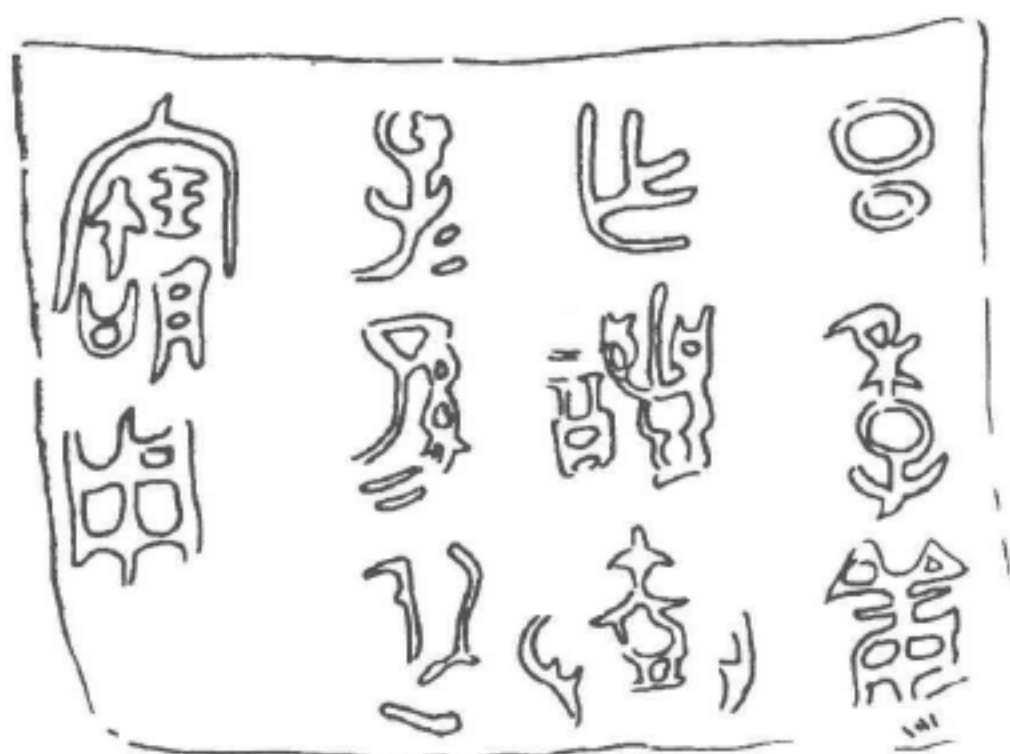 吕季姜乍醴壺
子=孫=永
寶用